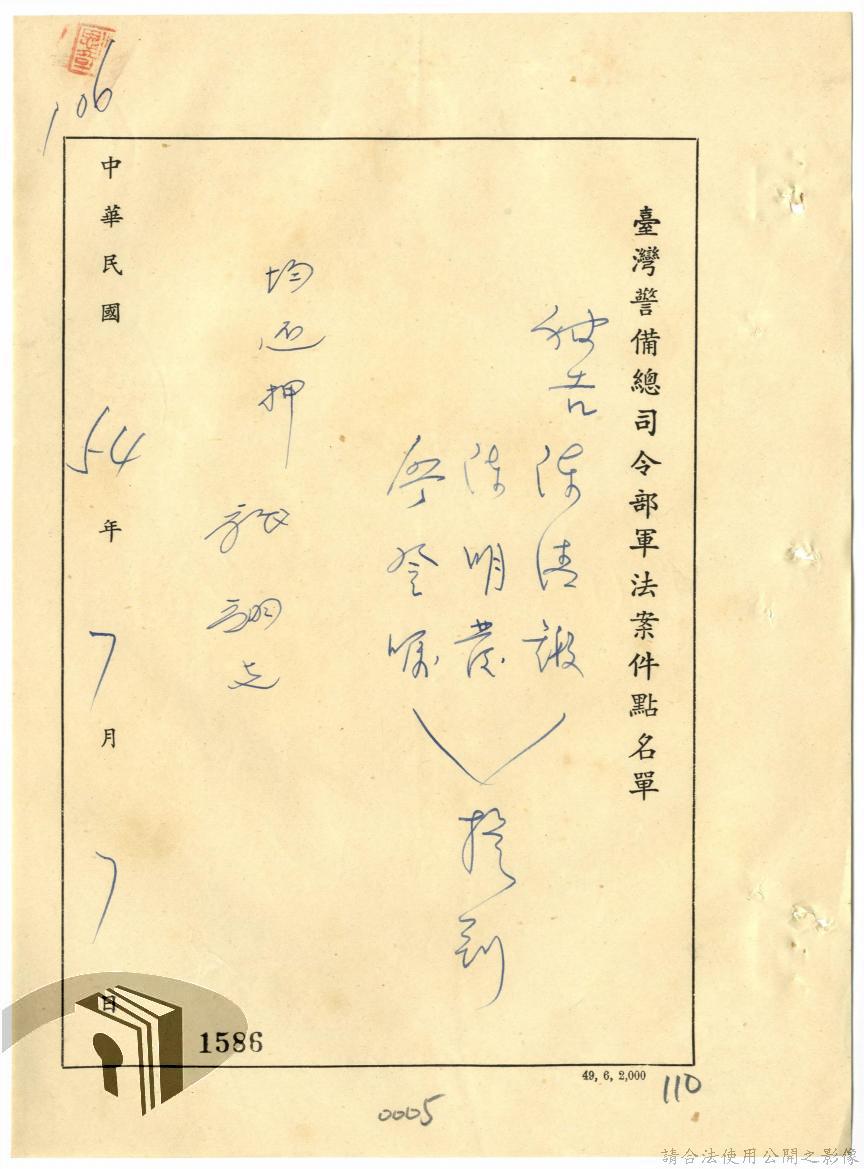 臺灣警備總司令部軍法案件點名單
被告 陳清鍛
陳明發
登
提到
均還押
中華民國54年7月7日
106
1586
49, 6, 2,000
110
0005
請合法使用公開之影像